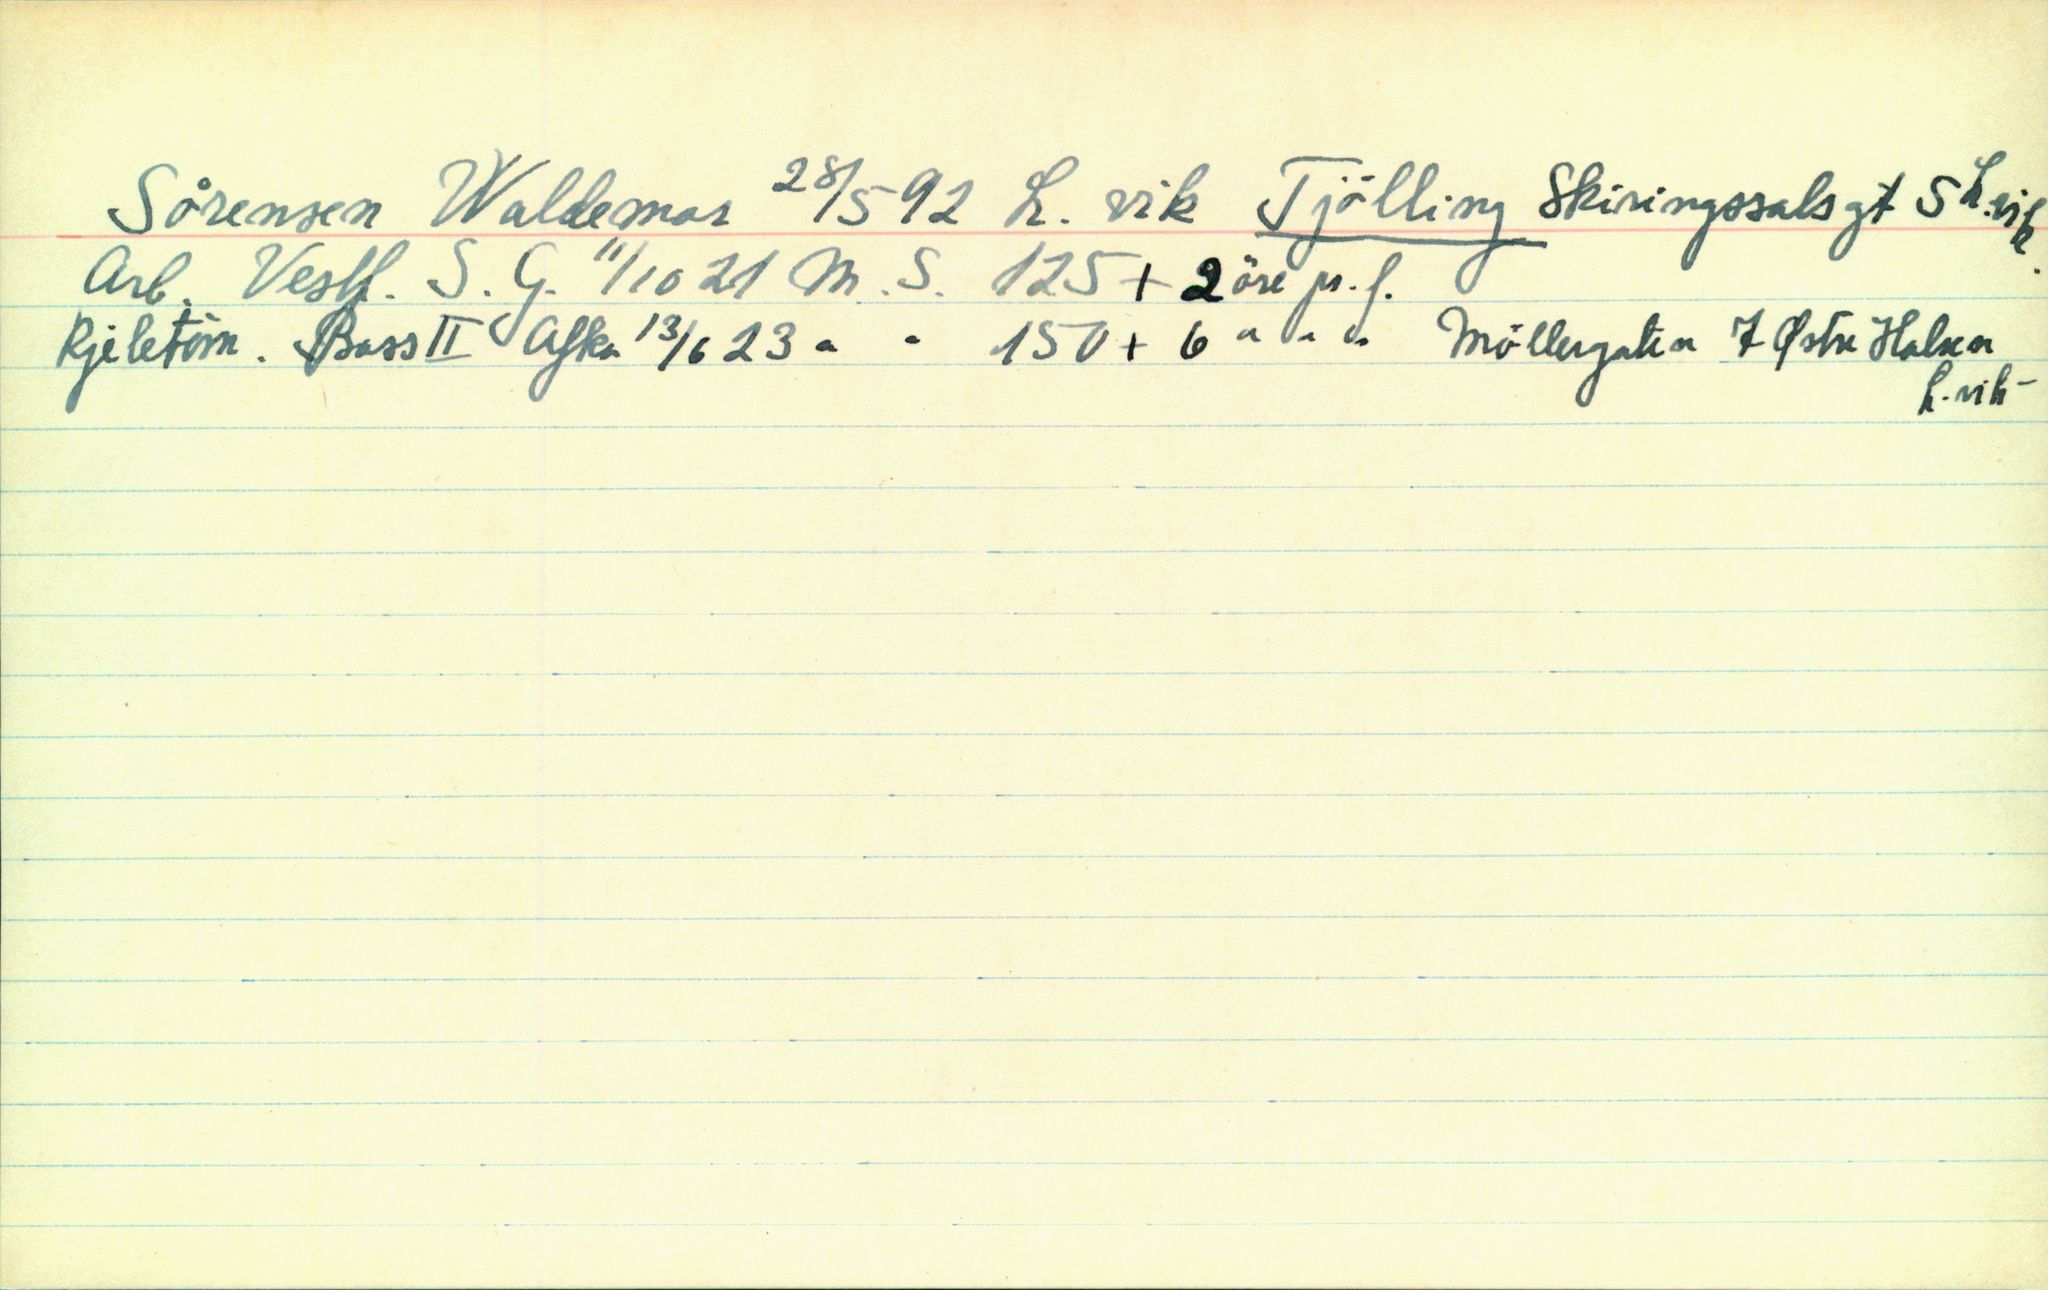 Sörensen Waldemar 28/5 92 L. vik Tjölling Skiringssalsgt 5 L.vik.
Arb. Vestf. S. G. 11/10 21 M. S. 125 + 2 öre pr. f.
Kjeletöm. Bass II Afka 13/6 23 " " 150 + 6 " " " Möllergaten 7 Østre Halsen
L. vik